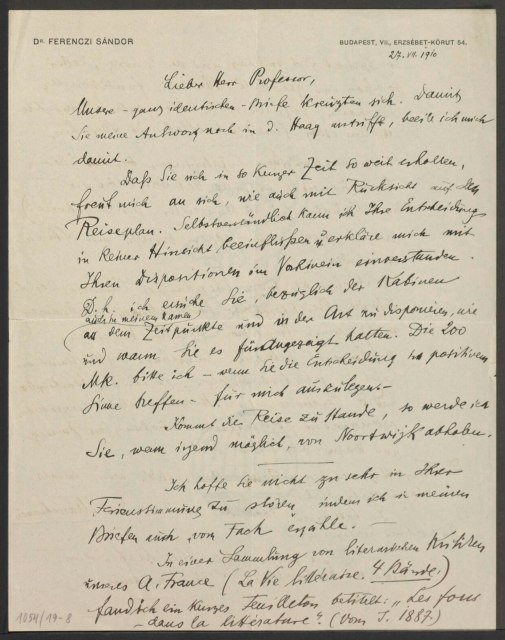 DR. FERENCZI SÁNDOR
BUDAPEST, VII., ERZSÉBET-KÖRUT 54.
27. VII. 1910
Lieber Herr Professor,
Unsere – ganz identischen – Briefe kreuzten sich. Damit
Sie meine Antwort noch in d. Haag antrifft, beeile ich mich
damit.
Daß Sie sich in so kurzer Zeit so weit erholten,
freut mich an sich, wie auch mit Rücksicht auf den
Reiseplan. Selbstverständlich kann ich Ihre Entscheidung
in keiner Hinsicht beeinflußen u erkläre mich mit
Ihren Dispositionen im Vorhinein einverstanden.
D. h. ich ersuche Sie, bezüglich der Kabinen
auch in meinem Namen
zu dem Zeitpunkte und in der Art zu disponieren, wie
und wann Sie es für angezeigt halten. Die 200
Mk. bitte ich – wenn Sie die Entscheidung im positiven
Sinne treffen – für mich auszulegen. –
Kommt die Reise zu Stande, so werde ich
Sie, wenn irgend möglich, von Noortwijk abholen.
Ich hoffe Sie nicht zu sehr in Ihrer
Ferienstimmung zu stören, indem ich in meinen
Briefen auch „vom Fach" erzähle. –
In einer Sammlung von literarischen Kritiken
unseres A. France (La Vie littéraire. 4 Bände.)
fand ich ein kurzes Feuilleton, betitelt: „Les fous
dans la littérature". (Vom J. 1887.)
1054/19-8